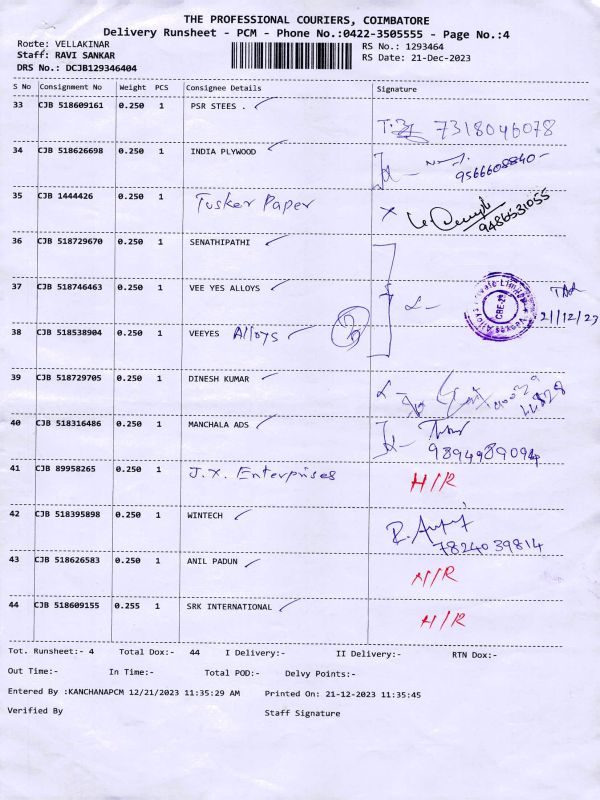 THE PROFESSIONAL COURIERS, COIMBATORE
Delivery Runsheet - PCM - Phone No.:0422-3505555 - Page No.:4
Route: VELLAKINAR
RS No.: 1293464
Staff: RAVI SANKAR
RS Date: 21-Dec-2023
DRS No.: DCJB129346404
S No Consignment No Weight PCS Consignee Details Signature
33 CJB 518609161 0.250 1 PSR STEES . 7318046078
34 CJB 518626698 0.250 1 INDIA PLYWOOD 9566608840
35 CJB 1444426 0.250 1 Tusker Paper X 9486531055
36 CJB 518729670 0.250 1 SENATHIPATHI
37 CJB 518746463 0.250 1 VEE YES ALLOYS 21/12/23
38 CJB 518538904 0.250 1 VEEYES Alloys
39 CJB 518729705 0.250 1 DINESH KUMAR
40 CJB 518316486 0.250 1 MANCHALA ADS 9894989094
41 CJB 89958265 0.250 1 J.X. Enterprises H/R
42 CJB 518395898 0.250 1 WINTECH 7824039814
43 CJB 518626583 0.250 1 ANIL PADUN H/R
44 CJB 518609155 0.255 1 SRK INTERNATIONAL H/R
Tot. Runsheet:- 4 Total Dox:- 44 I Delivery:- II Delivery:- RTN Dox:-
Out Time:- In Time:- Total POD:- Delvy Points:-
Entered By :KANCHANAPCM 12/21/2023 11:35:29 AM Printed On: 21-12-2023 11:35:45
Verified By Staff Signature